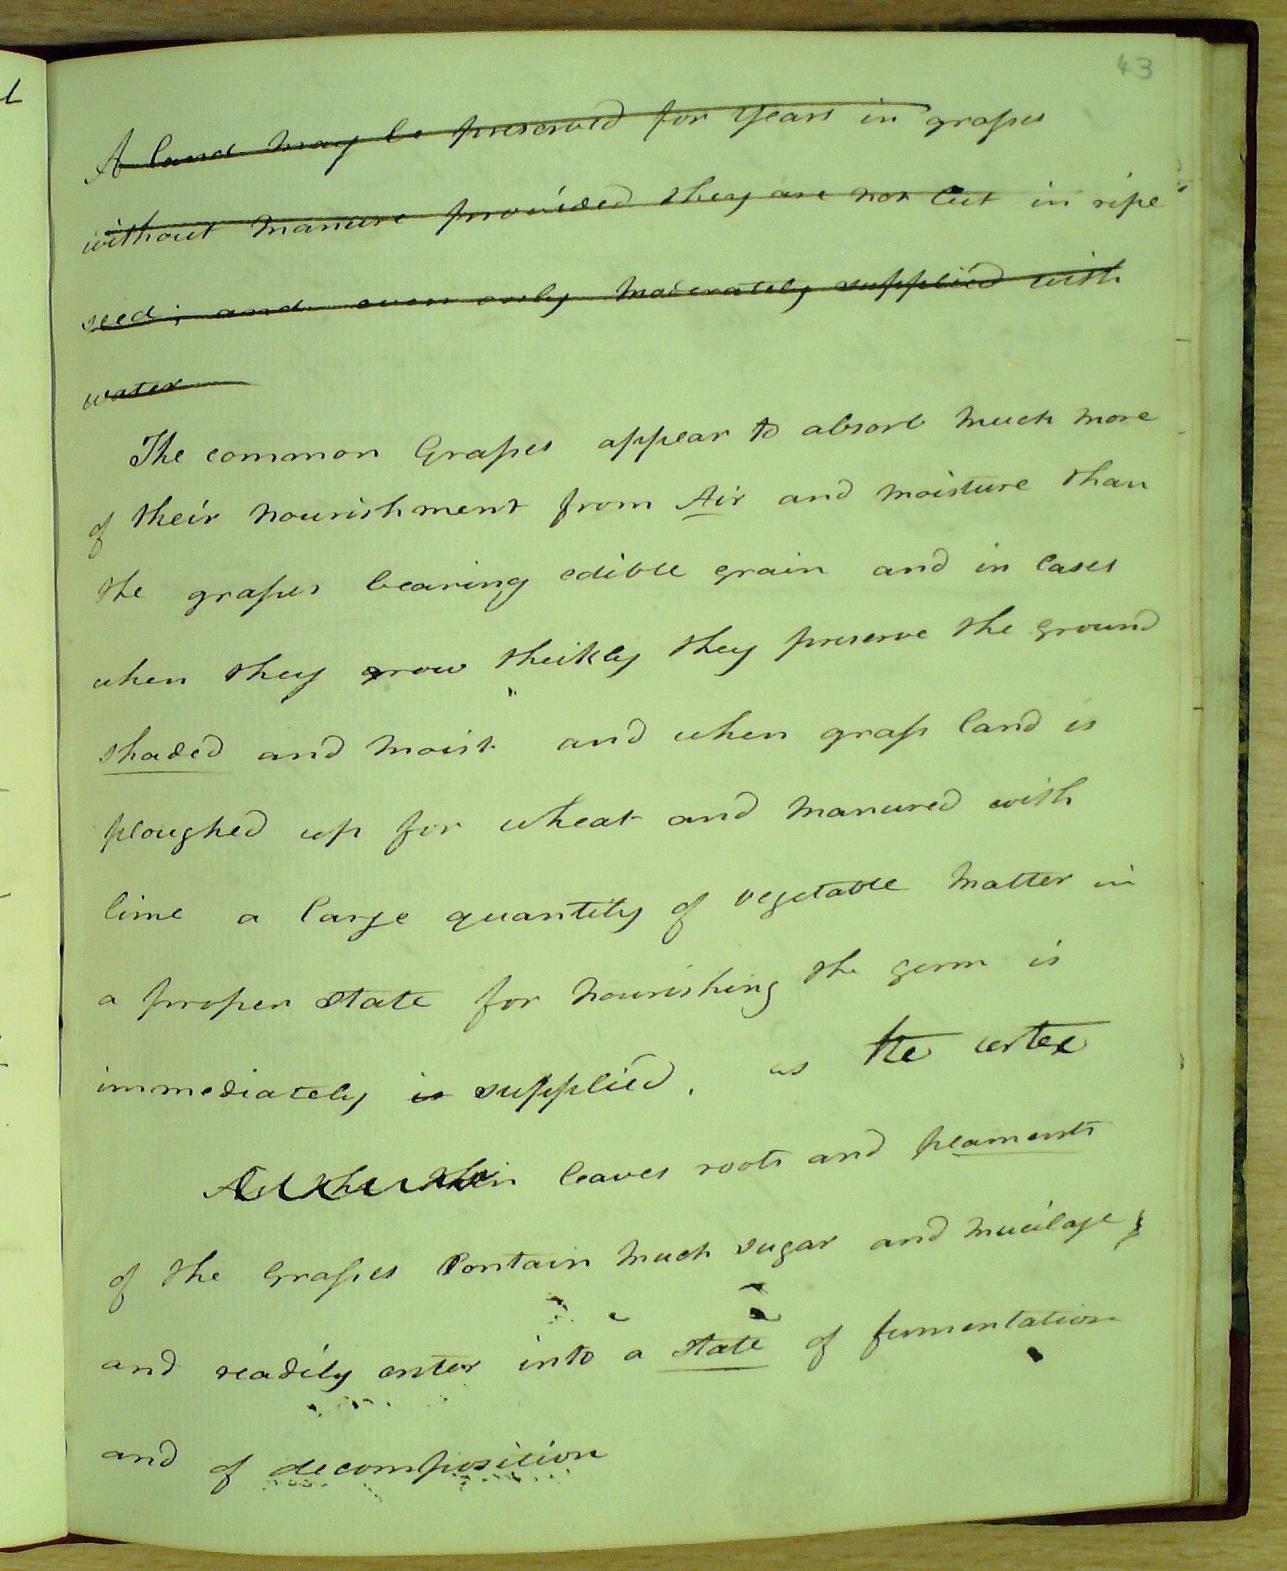 43
A land may be preserved for years in graſses
without manure provided they are not cut in ripe
seed; and even only moderately supplied with
water
The common Graſses appear to absorb much more
of their nourishment from Air and moisture than
the graſses bearing edible grain and in cases
when they grow thickly they preserve the ground
shaded and moist and when graſs land is
ploughed up for wheat and manured with
lime a large quantity of vegetable matter in
a proper state for nourishing the germ is
immediately is supplied. as the
leaves roots and
of the Graſses Contain much sugar and mucilage
and readily enter into a state of fermentation
and of decomposition